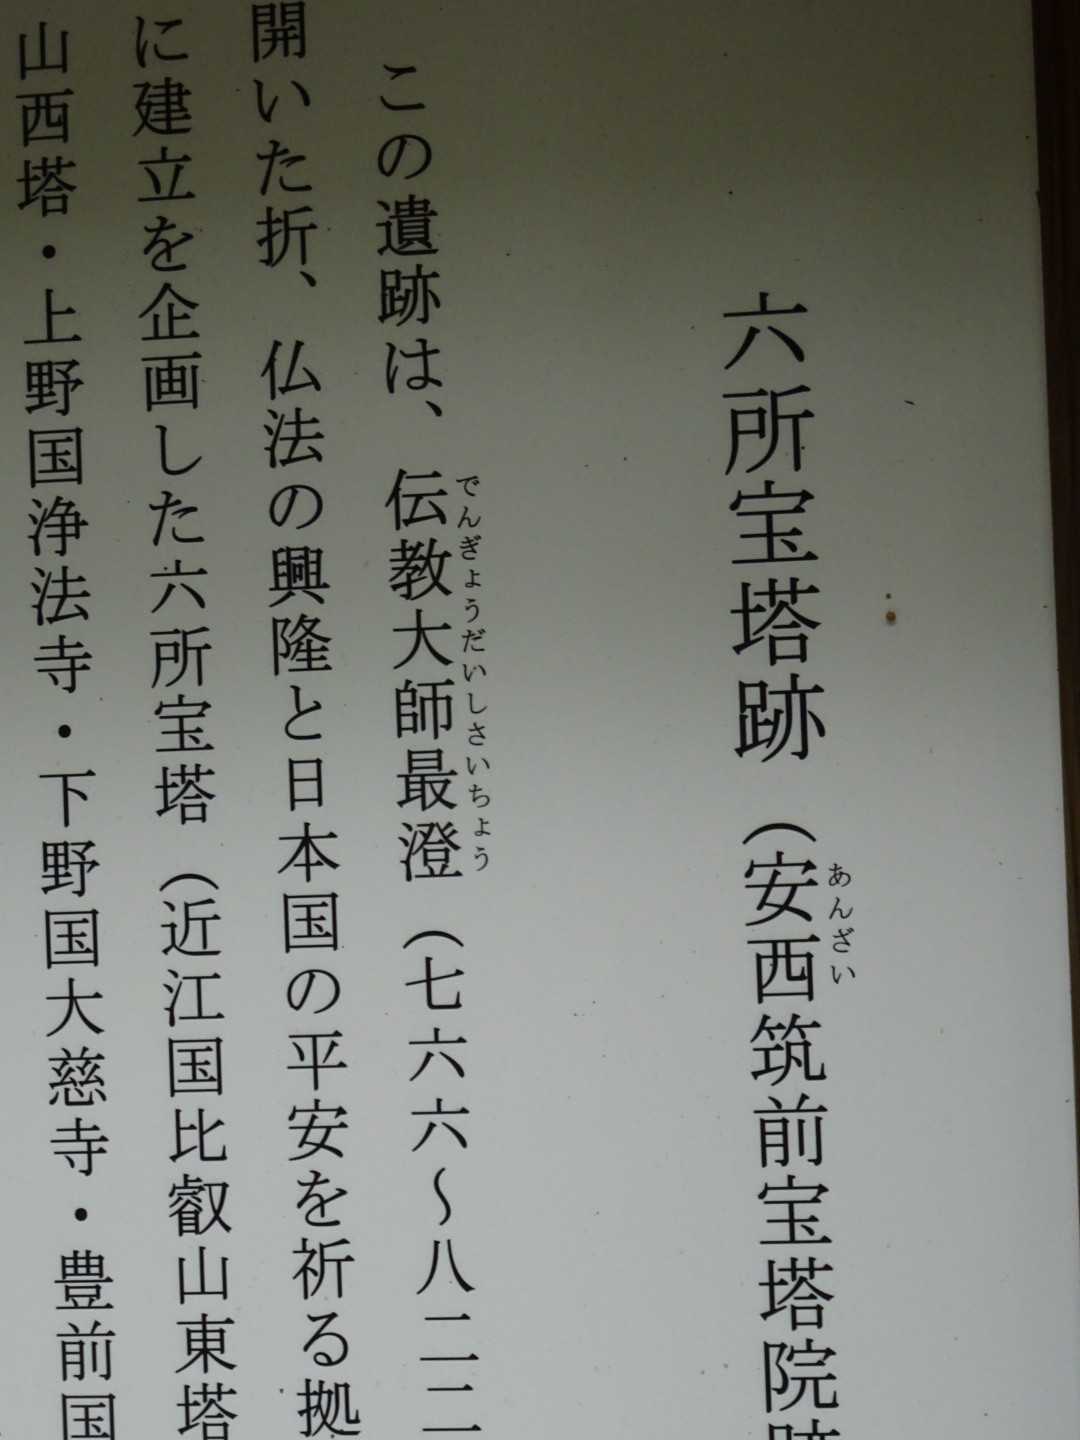 六所宝塔跡（安西筑前宝塔院跡
あんざい
この遺跡は、伝教大師最澄（七六六～八二二
でんぎょうだいしさいちょう
開いた折、仏法の興隆と日本国の平安を祈る拠
に建立を企画した六所宝塔（近江国比叡山東塔
山西塔・上野国浄法寺・下野国大慈寺・豊前国